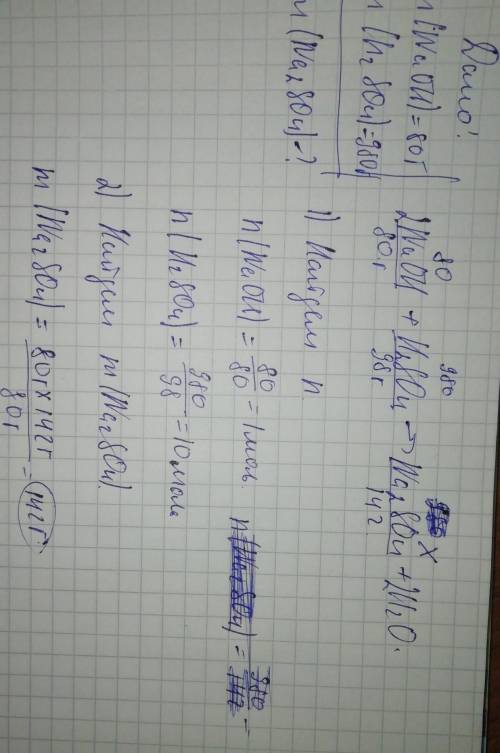 Дано:
m(NaOH)=80г
m(H2SO4)=980г
m(Na2SO4)-?
80 980 x
2NaOH + H2SO4 → Na2SO4 + 2H2O.
80г 98г 142
1) Найдем n
n(NaOH) = 80/80 = 1моль.
n(H2SO4) = 980/98 = 10моль
n(Na2SO4) = 980/142 =
2) Найдем m(Na2SO4).
m(Na2SO4) = 80г x 142г / 80г = 142г.